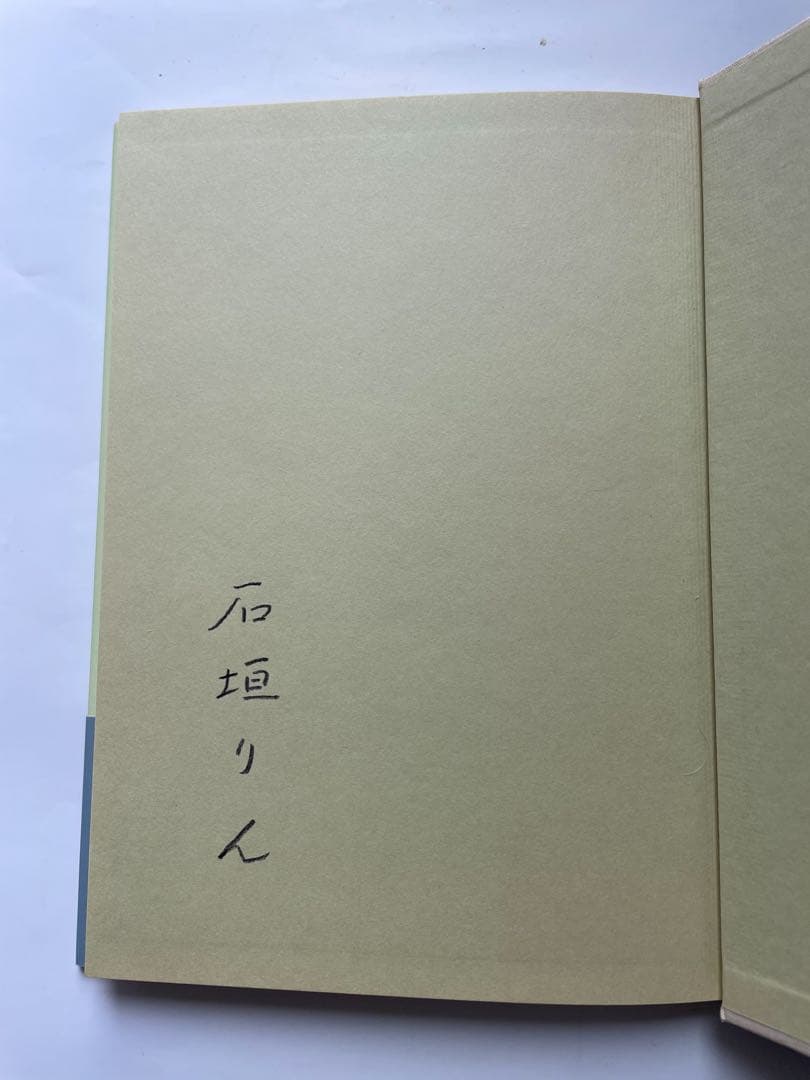 石垣りん